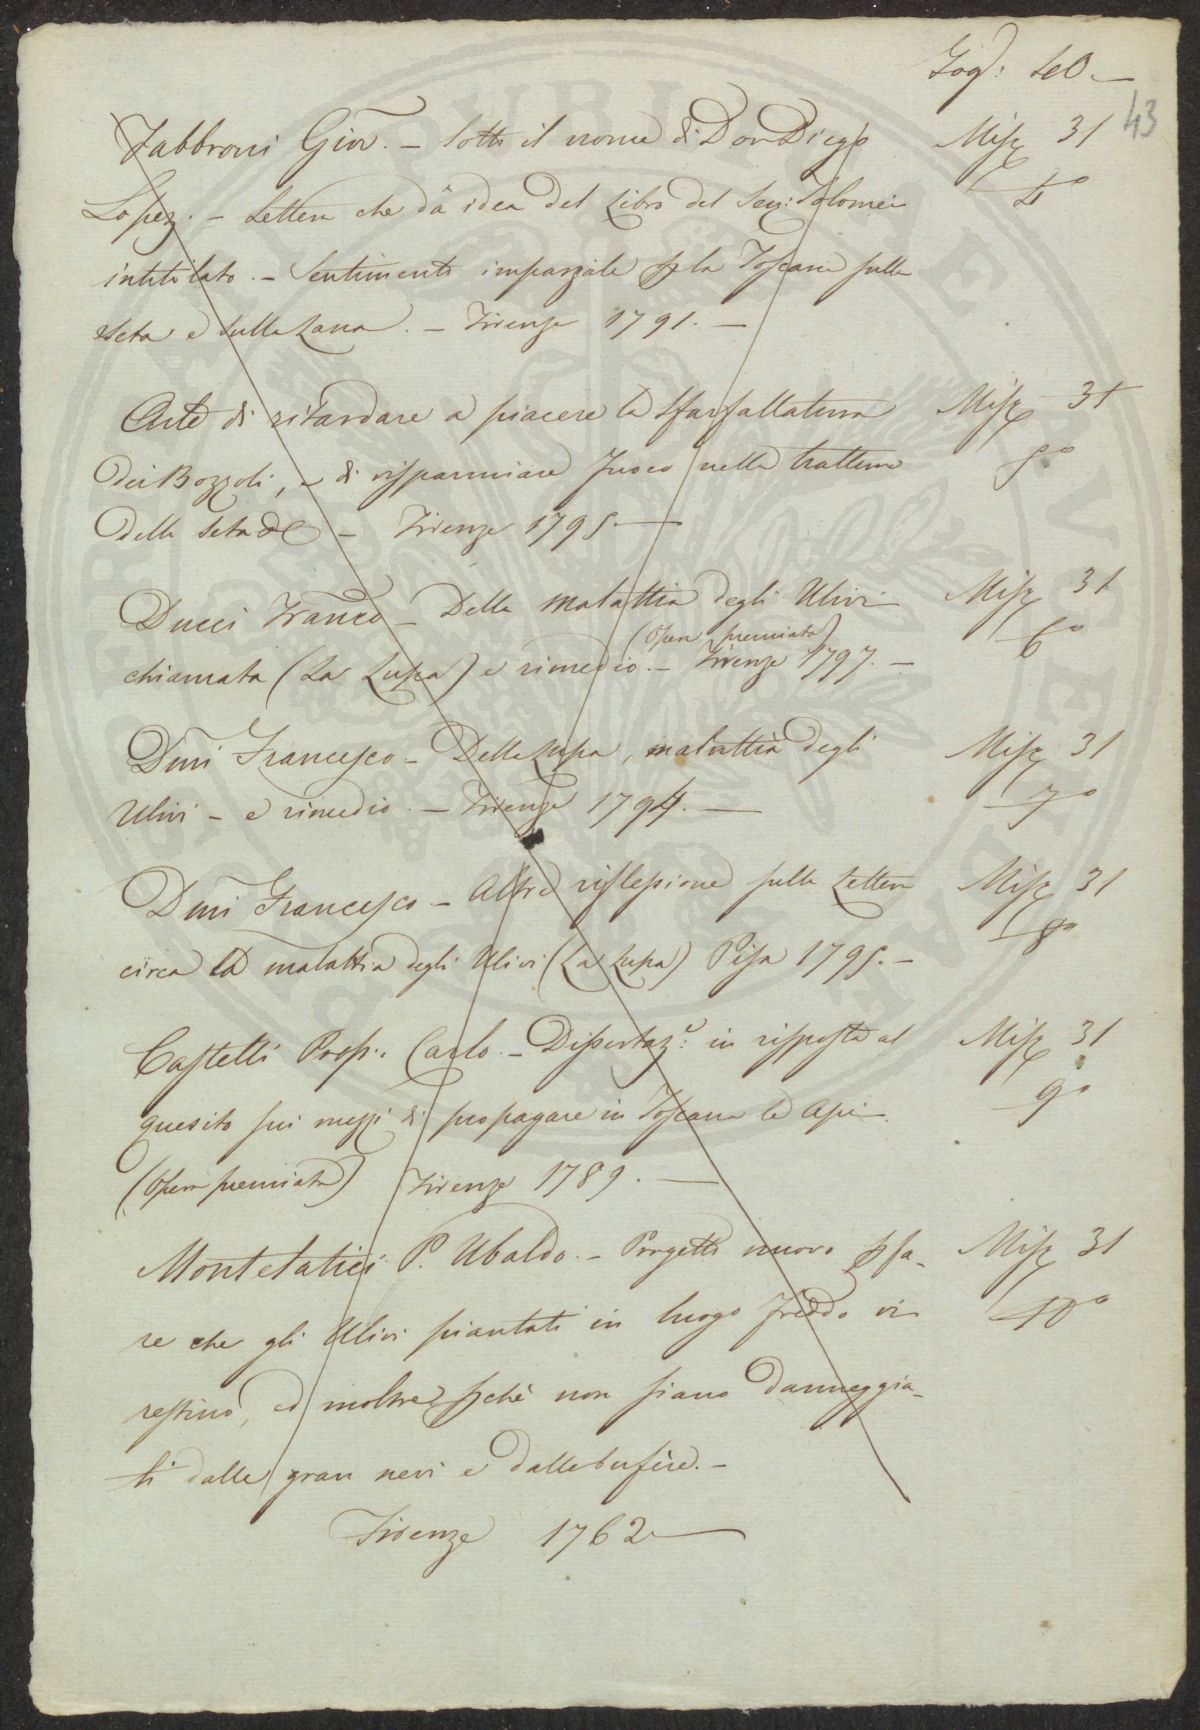 Fog: 40.
43
Fabbroni Giov. - Sotto il nome di Don Diego Misc 31
Lopez. - Lettera che dà idea del Libro del Sen: Tolomei 4°
intitolato. - Sentimento imparziale p la Toscana sulla
seta e sulla Lana. - Firenze 1791. -
Arte di ritardare a piacere la sfarfallatura Misc 31
dei Bozzoli, - di risparmiare fuoco nella trattura 5°
della Seta &c - Firenze 1795 -
Ducci Franco - Della malattia degli Ulivi Misc 31
(Opera premiata) 6°
chiamata (La Lupa) e rimedio. - Firenze 1797. -
Dini Francesco - Della Lupa, malattia degli Misc 31
Ulivi - e rimedio. - Firenze 1794. - 7°
Dini Francesco - Altre riflessione sulla Lettera Misc 31
circa la malattia degli Ulivi (La Lupa) Pisa 1795. - 8°
Castelli Carlo. - Dissertaz.e in risposta al Misc 31
quesito sui mezzi di propagare in Toscana le Api. 9°
(Opera premiata) Firenze 1789. -
Montelatici P. Ubaldo. - Progetto nuovo p fa- Misc 31
re che gli Ulivi piantati in luogo freddo vi 10°
restino, ed inoltre pchè non siano danneggia-
ti dalle gran nevi e dalle bufère. -
Firenze 1762 -